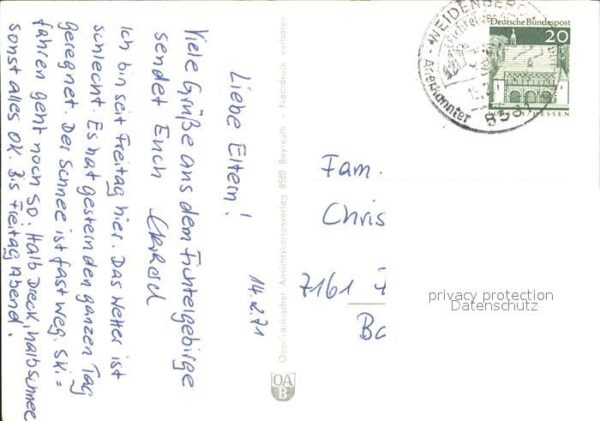 14.2.71
Liebe Eltern!
Viele Grüße aus dem Fichtelgebirge
sendet Euch
Ich bin seit Freitag hier. Das Wetter ist
schlecht. Es hat gestern den ganzen Tag
geregnet. Der Schnee ist fast weg. Ski=
fahren geht noch so. Halb Dreck, halb Schnee
sonst alles OK Bis Freitag Abend.
Oberfränkischer Ansichtskartenverlag 8580 Bayreuth - Nachdruck verboten
OA
B
WEIDENBERG
Anerkannter
858
Deutsche Bundespost
20
HESSEN
Fam.
Chris
7161
Ba
privacy protection
Datenschutz